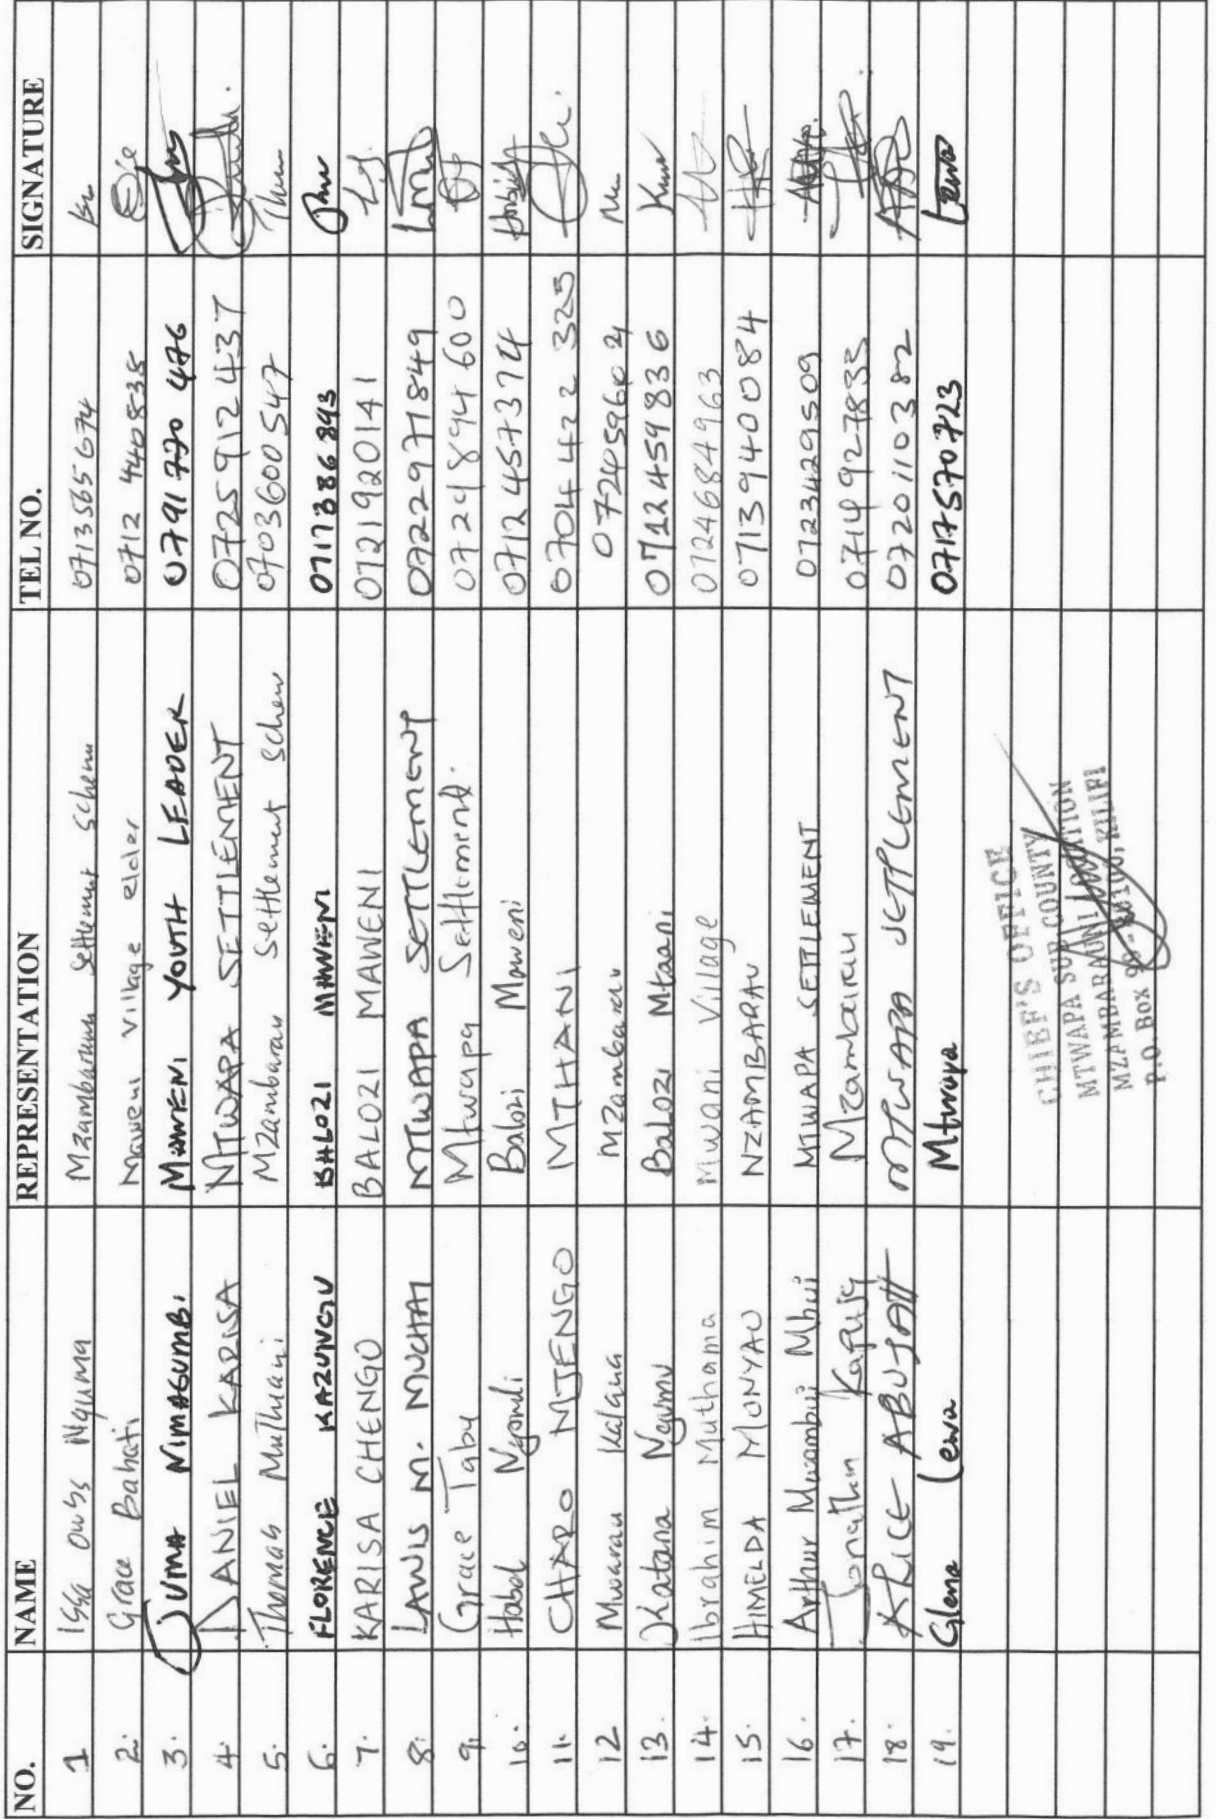 NO. NAME REPRESENTATION TEL NO. SIGNATURE
1 Issa Mzambarauni Settlement Schem 0713565674
2. Grace Bahati Maweni Village elder 0712 440838
3. JUMA NIMAGUMBI MAWENI YOUTH LEADER 0791 770 476
4. DANIEL KARISA MTWAPA SETTLEMENT 0725912437
5. Thomas Muthiani Mzambarau Settlement Schem 0703600547
6. FLORENCE KAZUNGU BALOZI MAWENI 0717386893
7. KARISA CHENGO BALOZI MAWENI 0721920141
8. LAWIS M. MUCHAI MTWAPA SETTLEMENT 0722971849
9. Grace Tabu Mtwapa Settlement. 0724894600
10. Balozi Maweni 0712457374
11. CHARO MJENGO MTHANI 0704422325
12 Mwarau Kalama Mzambarau
13. Katana Ngumu Balozi Mtaani 0712459836
14. Ibrahim Muthama Mwani Village 0724684963
15. HIMELDA MUNYAU NZAMBARAU 0713940084
16. Arthur Mbui MTWAPA SETTLEMENT 0723429509
17. Jonathan Mzambarau 0714927835
18. MTWAPA SETTLEMENT 0720110382
19. Glena Lewa Mtwapa 0717570723
CHIEF'S OFFICE
MTWAPA SUB COUNTY
MZAMBARAUNI LOCATION
P.O. BOX KILIFI